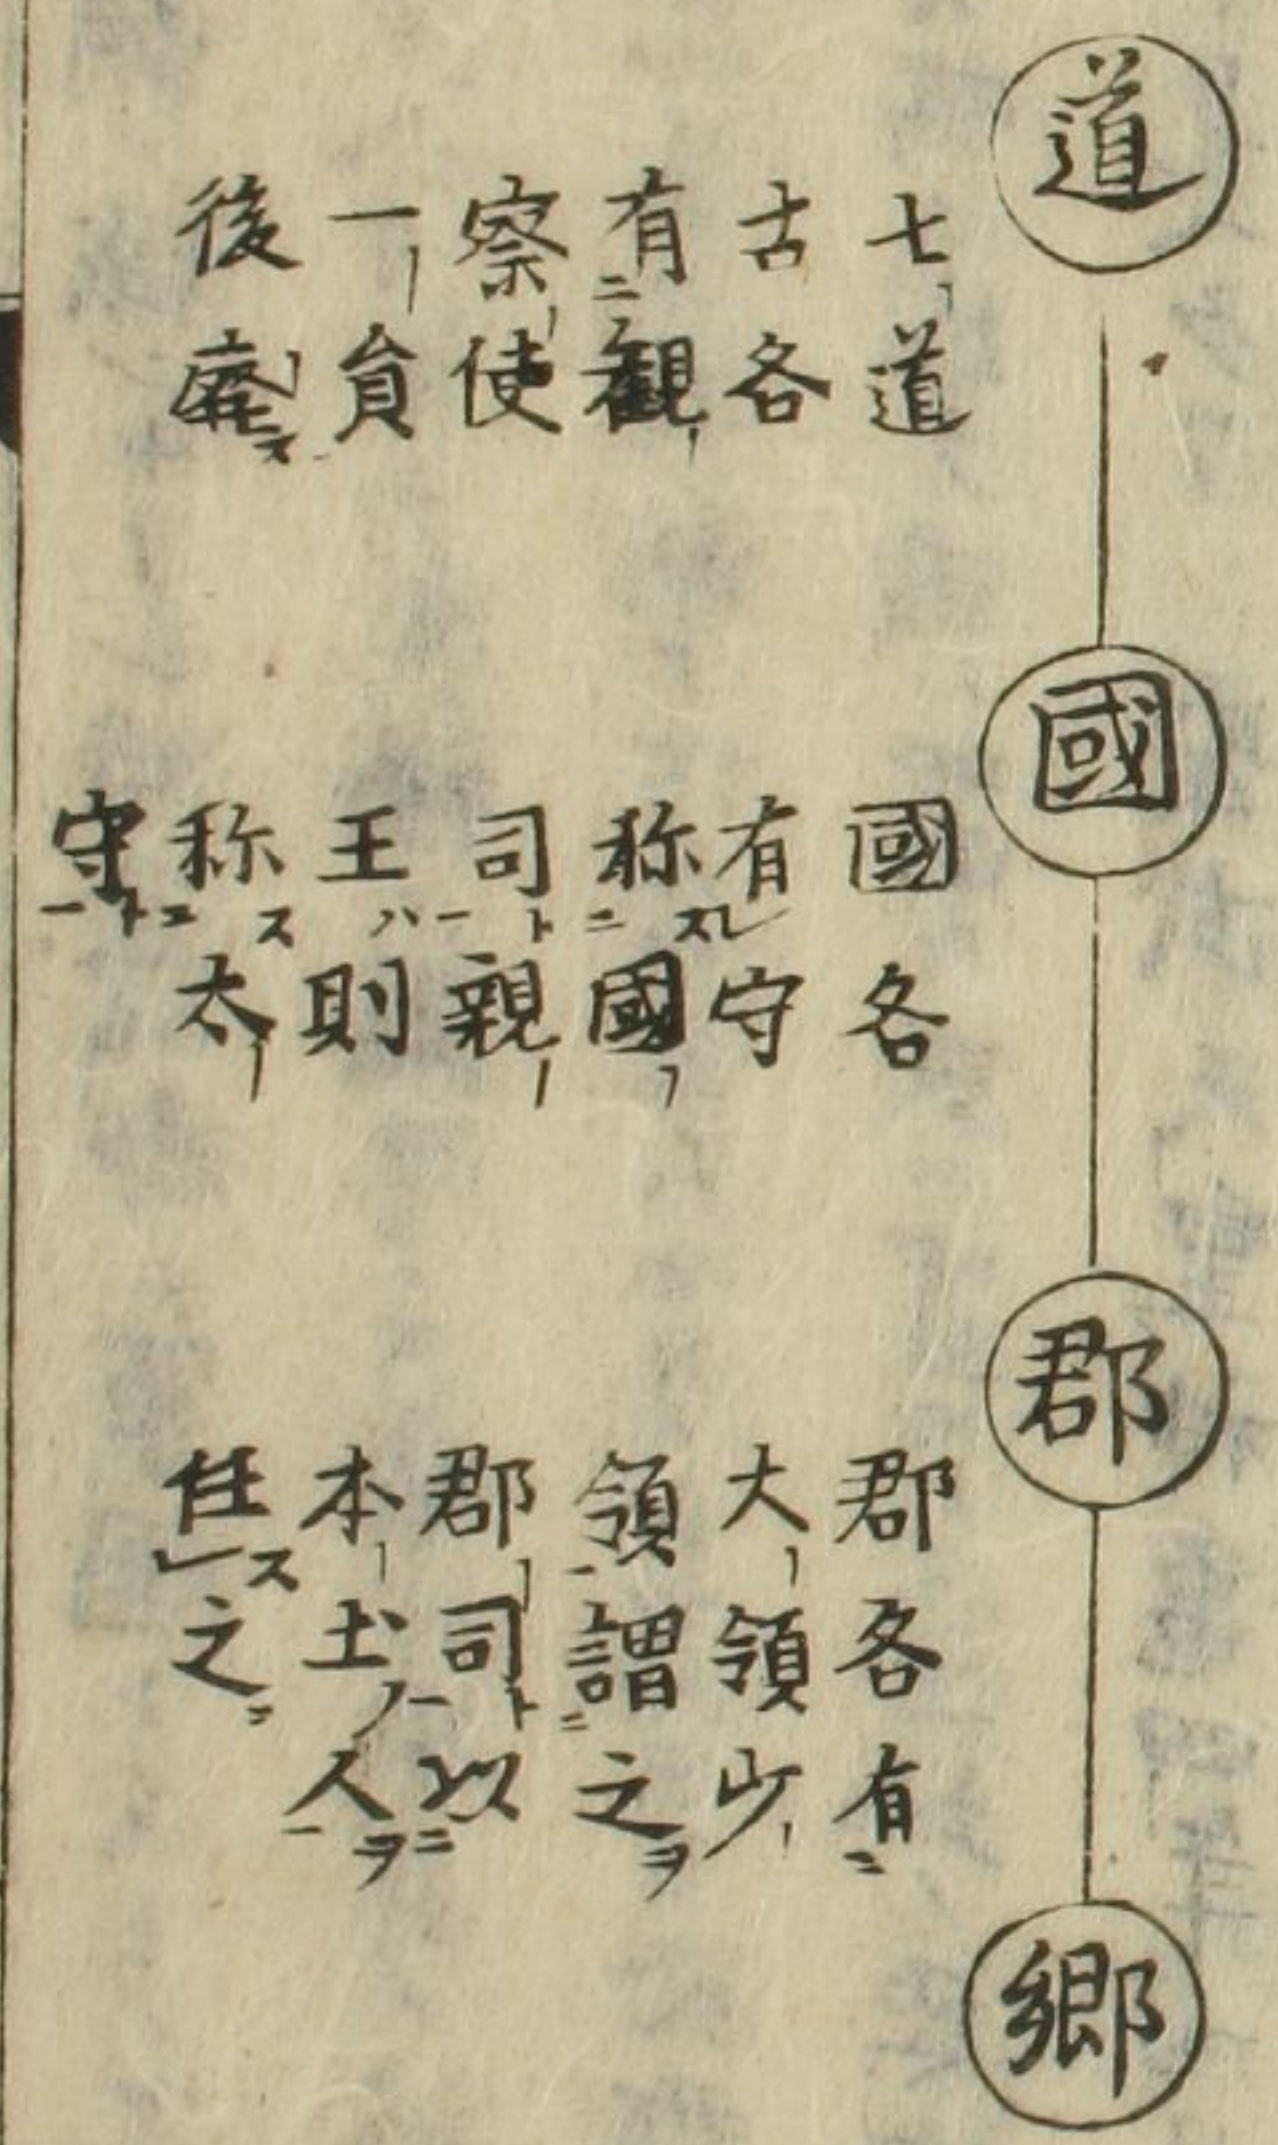 道
七道
古各
有觀
察使
一貟
後廃
國
國各
有守
称國
司親
王則
称太
守
郡
郡各有
大領少
領謂之
郡司以
本土人
任之
鄉